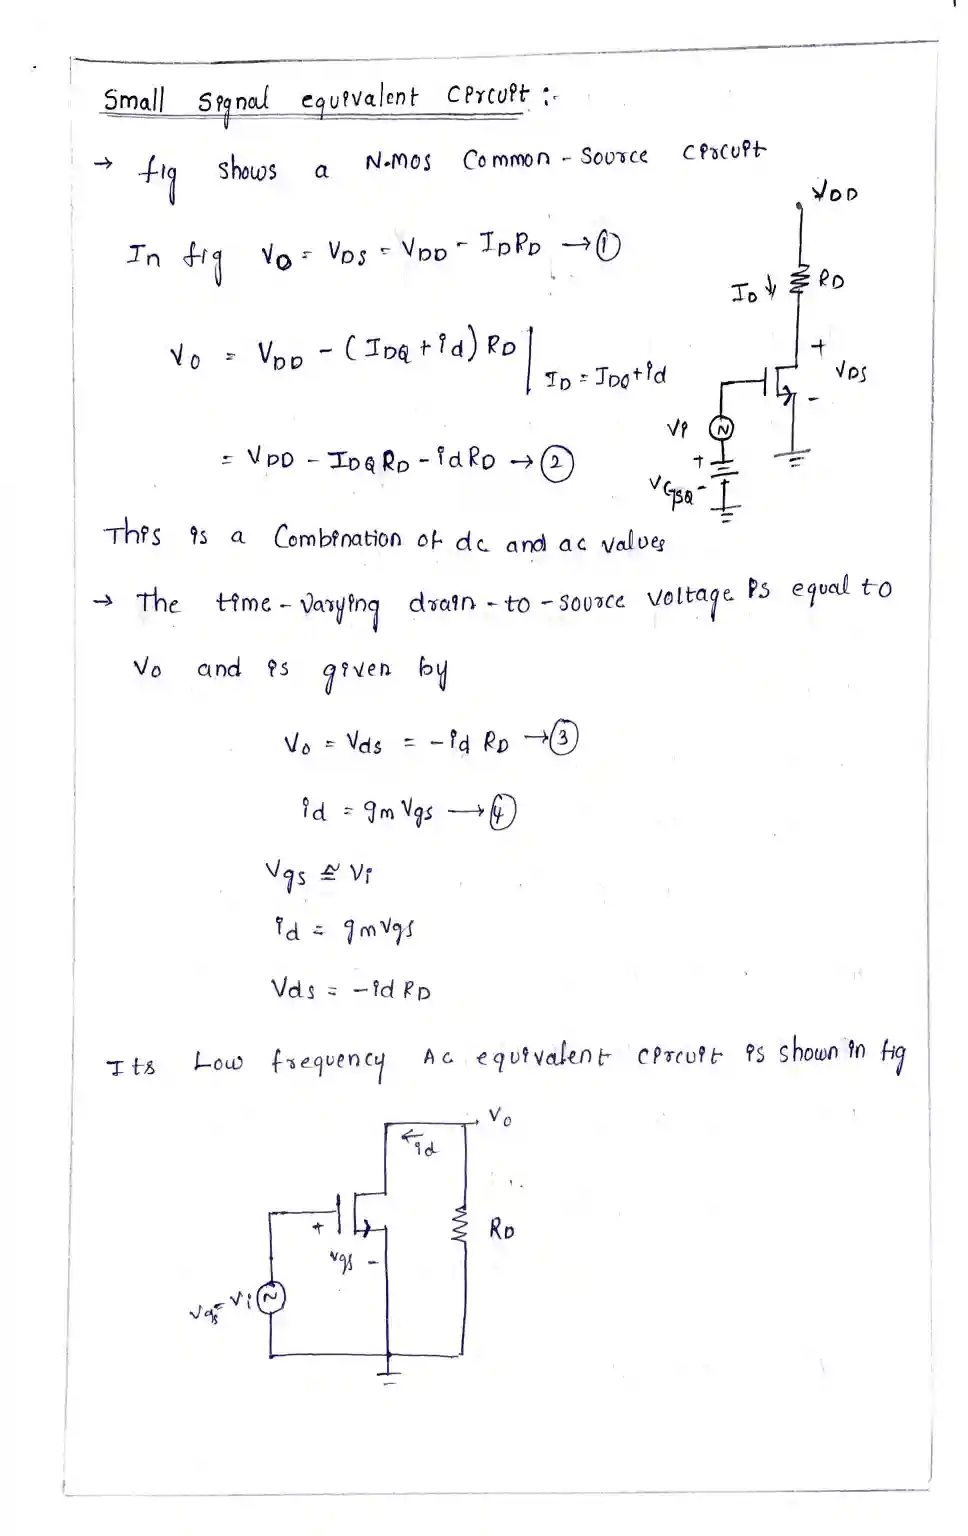 Small Signal equivalent Circuit :-
→ fig shows a N-MOS Common - Source circuit
VDD
In fig VO = VDS = VDD - IDRD → ①
ID ↓ RD
VO = VDD - (IDQ + id) RD | ID = IDQ + id
+
VDS
-
Vi
= VDD - IDQ RD - id RD → ②
+
VGSQ -
This is a Combination of dc and ac values
→ The time - Varying drain - to - source voltage is equal to
Vo and is given by
Vo = Vds = - id RD → ③
id = gm Vgs → ④
Vgs ≅ Vi
id = gm Vgs
Vds = - id RD
Its Low frequency AC equivalent circuit is shown in fig
Vo
← id
RD
+ Vgs -
Vgs = Vi